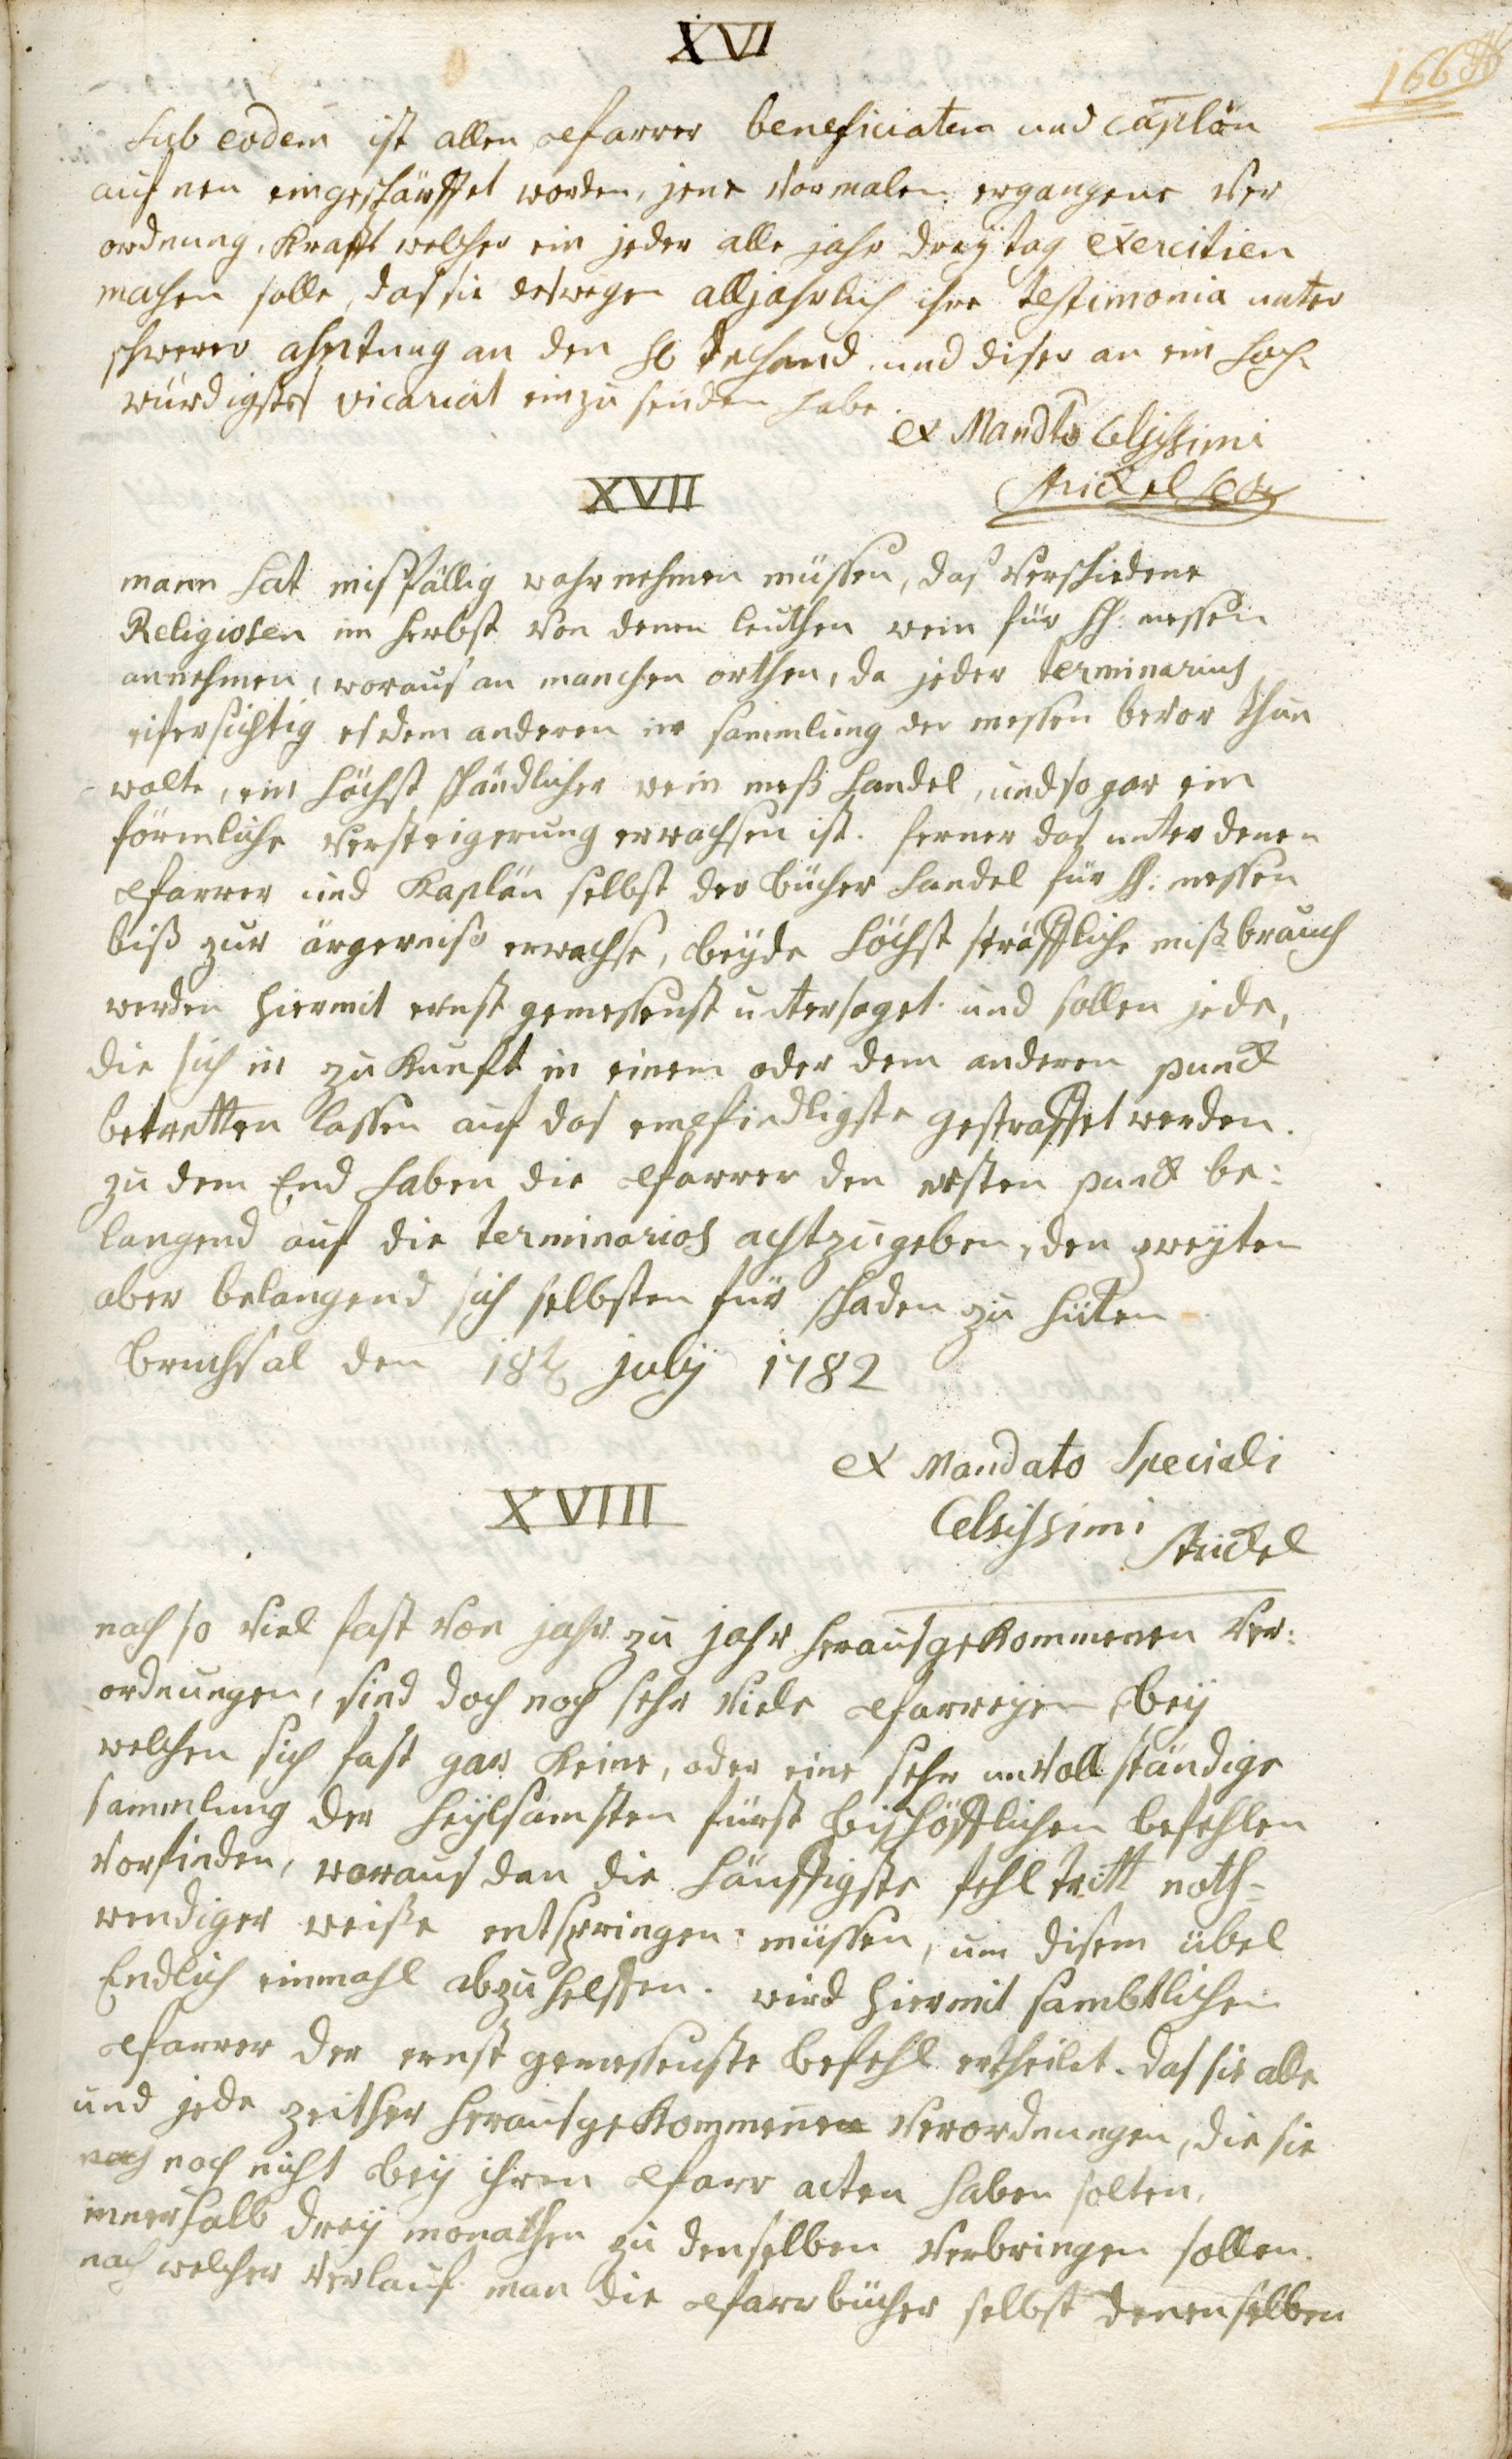 XVI
166
Sub eodem ist allen Pfarrer beneficiaten und Caplän
auf neu eingeschärffet worden, jene vormalen ergangene Ver
ordnung, krafft welcher ein jeder alle jahr dreÿ tag Exercitien
machen solle, das sie deswegen alljährlich ihre testimonia unter
schwerer ahntung an den H. Dechand und diser an ein hoch-
würdigstes vicariat einzusenden habe.
ex Mandto Celsissimi
Stückel Secr
XVII
mann hat misfällig wahrnehmen müssen, das verschiedene
Religiosen im herbst von denen leuthen wein für hh: messen
annehmen, woraus an manchen orthen, da jeder terminarius
eifersichtig es dem anderen in sammlung der messen bevor thun
wolte, ein höchst schändlicher wein meß handel, und so gar ein
förmliche versteigerung erwachsen ist. ferner das unter denen
Pfarrer und Kaplän selbst der bücher handel für hh: messen
biß zur ärgernisß erwachse, beÿde höchst sträffliche mißbrauch
werden hiermit ernst gemessenst untersaget. und sollen jede,
die sich in zukunfft in einem oder dem anderen punct
betretten lassen auf das empfindligste gestraffet werden.
zu dem End haben die Pfarrer den ersten punct be:
langend auf die terminarios achtzugeben, den zweÿten
aber belangend sich selbsten für schaden zu hüten
Bruchsal den 18t julÿ 1782
ex Mandato Speciali
Celsissimi Stückel
XVIIII
nach so viel fast von jahr zu jahr herausgekommenen Ver:
ordnungen, sind doch noch sehr viele Pfarreÿen beÿ
welchen sich fast gar keine, oder eine sehr unvollständige
sammlung der heÿlsamsten fürst bischöfflichen befehlen
vorfinden, woraus dan die häuffigste fehl tritt noth-
wendiger weiße entspringen müssen, um disem übel
Endlich einmahl abzuhelffen. wird hiermit sambtlichen
Pfarrer der ernst gemessenste befehl ertheilet. das sie alle
und jede zeither herausgekommene verordnungen, die sie
noch noch nicht beÿ ihren Pfarr acten haben solten,
innerhalb dreÿ monathen zu denselben verbringen sollen.
nach welcher verlauf man die Pfarrbücher selbst denenselben